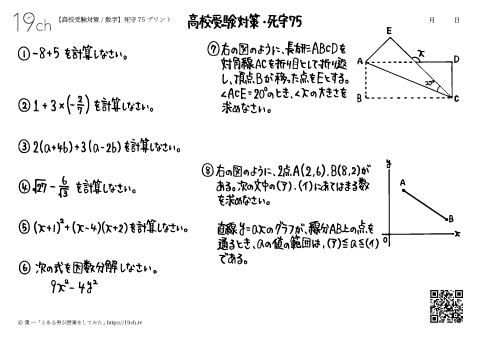 19ch 【高校受験対策/数学】死守75プリント 高校受験対策・死守75 月 日
① -8+5 を計算しなさい。
② 1+3×(-2/7) を計算しなさい。
③ 2(a+4b)+3(a-2b)を計算しなさい。
④ √27 - 6/√3 を計算しなさい。
⑤ (x+1)²+(x-4)(x+2)を計算しなさい。
⑥ 次の式を因数分解しなさい。
9x²-4y²
⑦ 右の図のように、長方形ABCDを
対角線ACを折り目として折り返
し、頂点Bが移った点をEとする。
∠ACE=20°のとき、∠xの大きさを
求めなさい。
E
x
A
D
20°
B
C
⑧ 右の図のように、2点A(2,6)、B(8,2)が
ある。次の文中の(ア)、(イ)にあてはまる数
を求めなさい。
直線 y=axのグラフが、線分AB上の点を
通るとき、aの値の範囲は、(ア)≦a≦(イ)
である。
y
A
B
O
x
© 葉一「とある男が授業をしてみた」https://19ch.tv